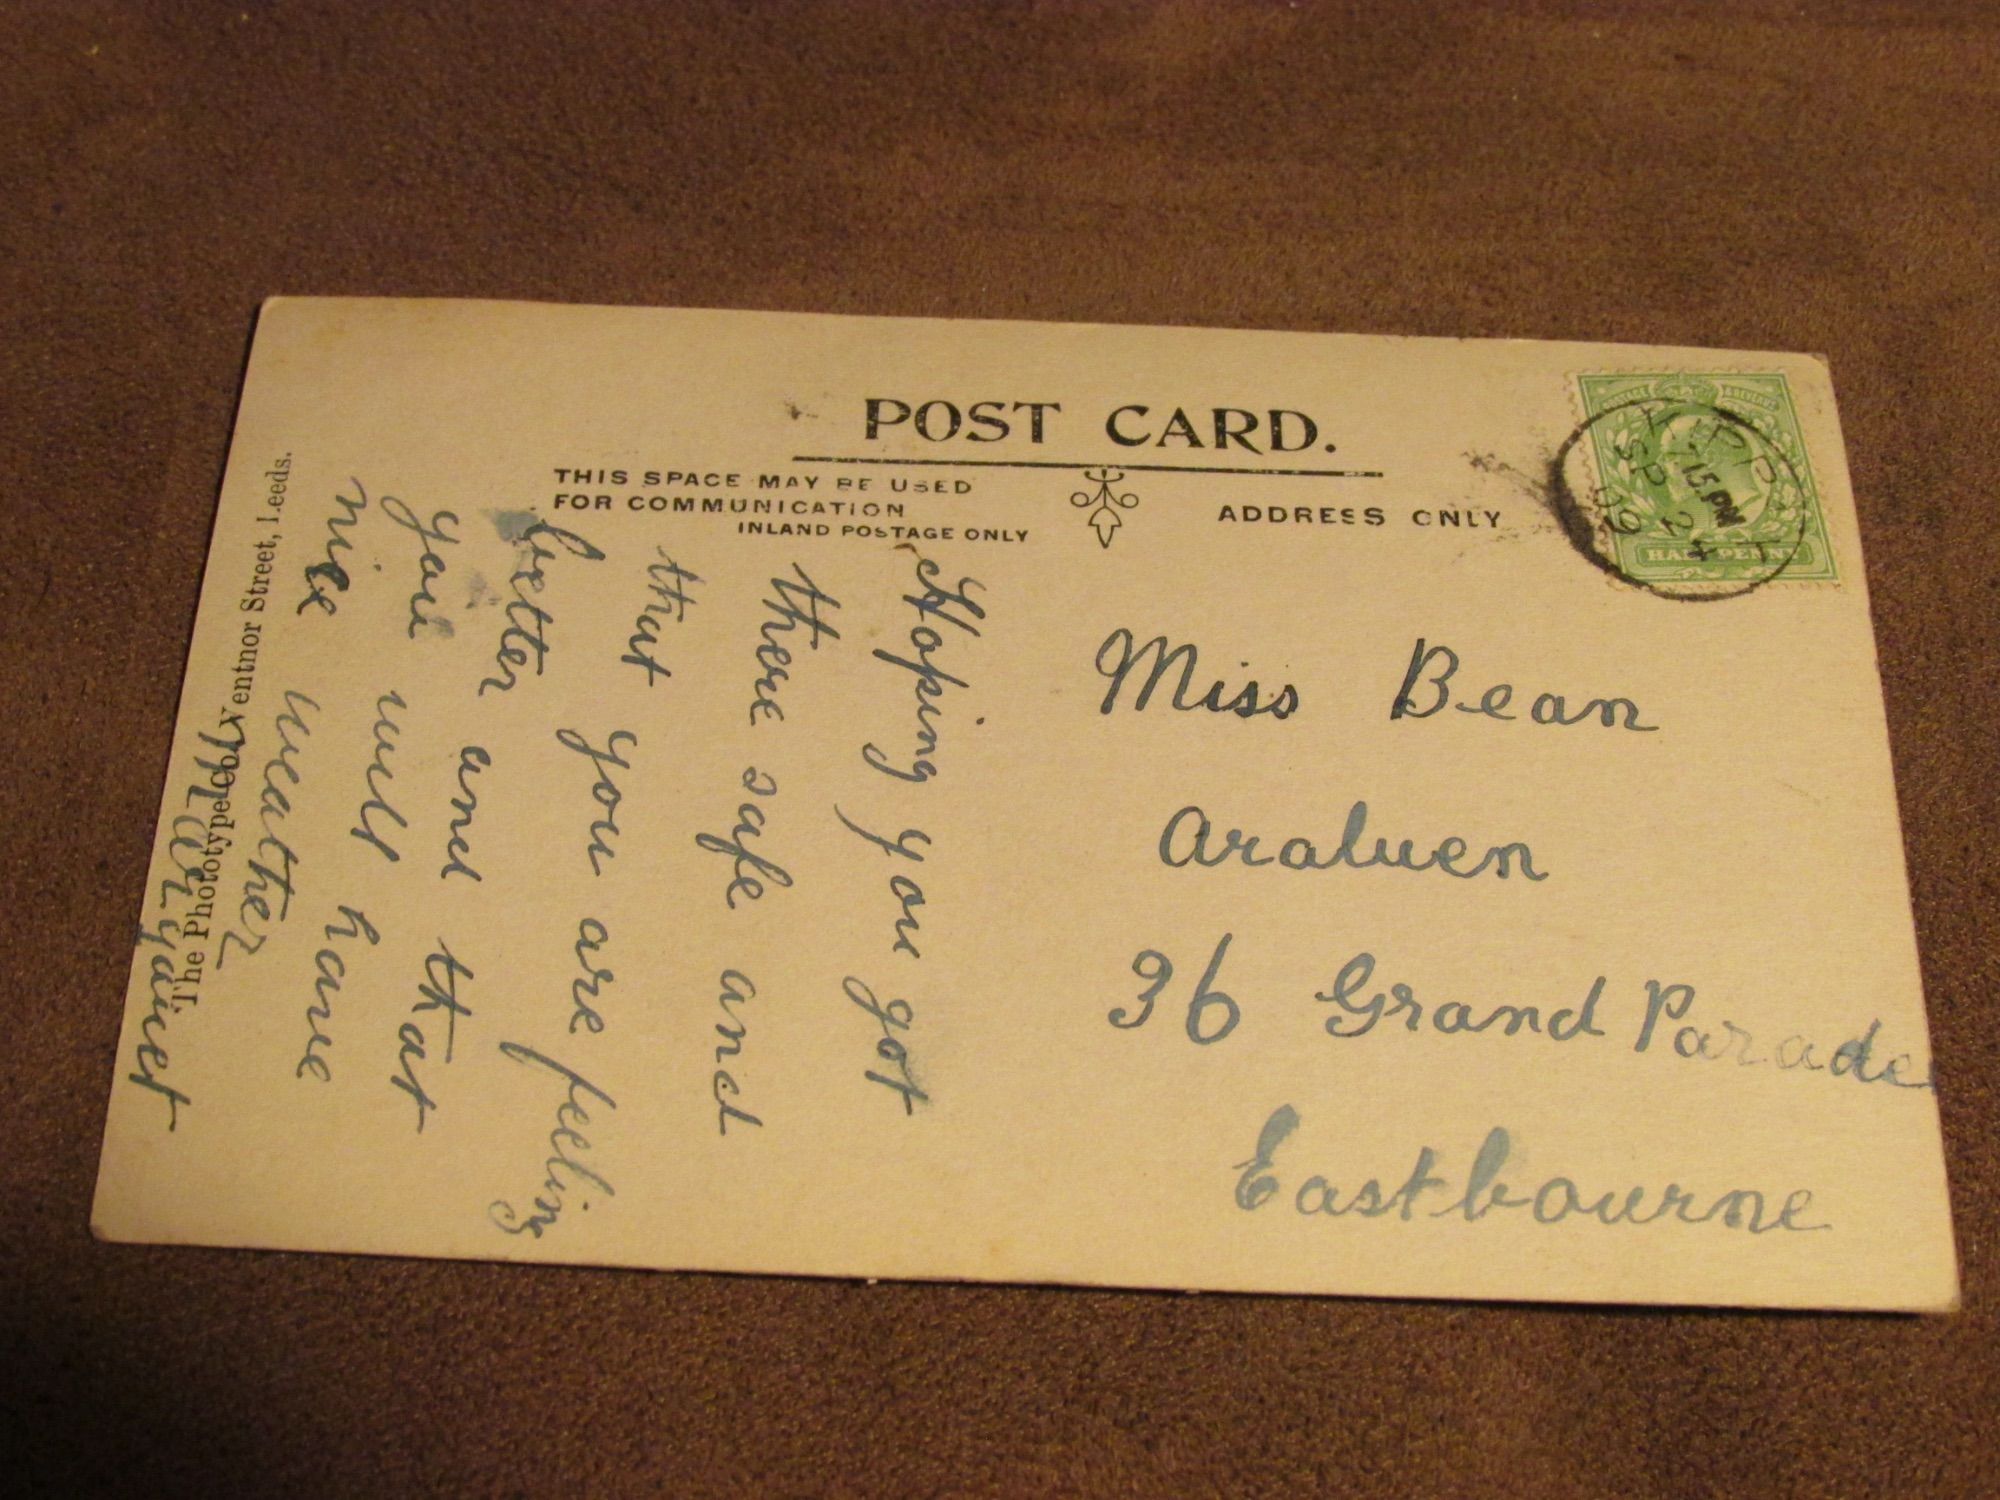 POST CARD.
THIS SPACE MAY BE USED
FOR COMMUNICATION
INLAND POSTAGE ONLY
ADDRESS ONLY
POSTAGE & REVENUE
HALF PENNY
KIPPAX
15 PM
SP 24
09
Miss Bean
Araluen
36 Grand Parade
Eastbourne
Hoping you got
there safe and
that you are feeling
better and that
you will have
nice weather
The Phototype Co., Ventnor Street, Leeds.